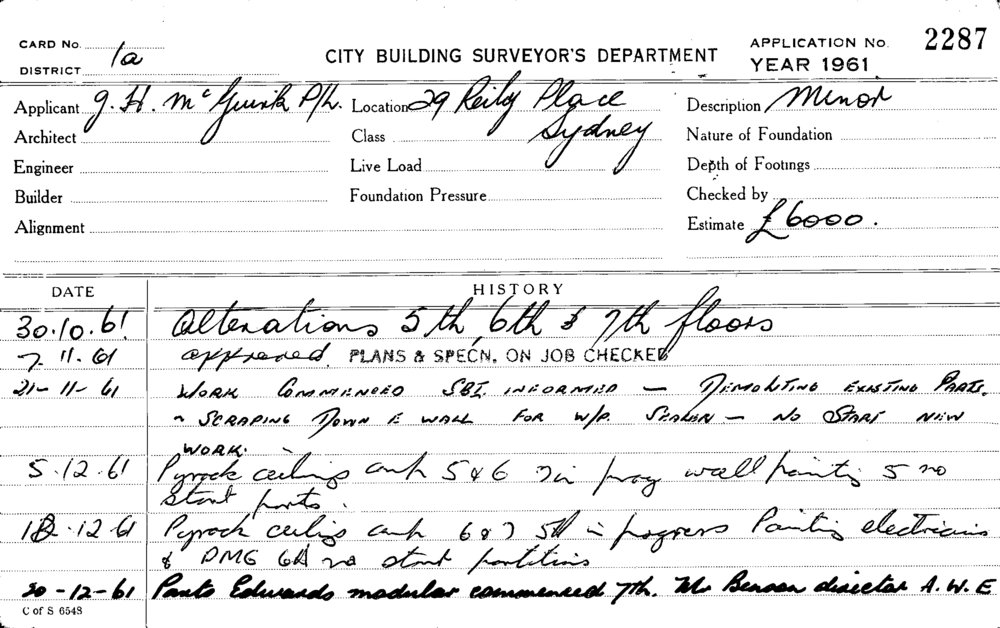 CARD No. 1a
DISTRICT
CITY BUILDING SURVEYOR'S DEPARTMENT
APPLICATION No. 2287
YEAR 1961
Applicant J. H. McGuirk P/L. Location 29 Reiby Place Description Minor
Architect Class Sydney Nature of Foundation
Engineer Live Load Depth of Footings
Builder Foundation Pressure Checked by
Alignment Estimate £6000.
DATE HISTORY
30.10.61 Alterations 5th, 6th & 7th floors
7.11.61 approved. PLANS & SPECN. ON JOB CHECKED
21-11-61 WORK COMMENCED SBI. INFORMED — DEMOLITING EXISTING PARTS.
~ SCRAPING DOWN E WALL FOR W/P. SEALER — NO START NEW
WORK.
5.12.61 Pyrock ceilings comp 5 & 6 7 in prog wall painting 5 no
start parts.
12.61 Pyrock ceilings comp 6 & 7 5th in progress Painting electricians
& PMG 6th no start partitions
20-12-61 Parts Edwards modular commenced 7th. Mr Benson director A.W.E
C of S 6548